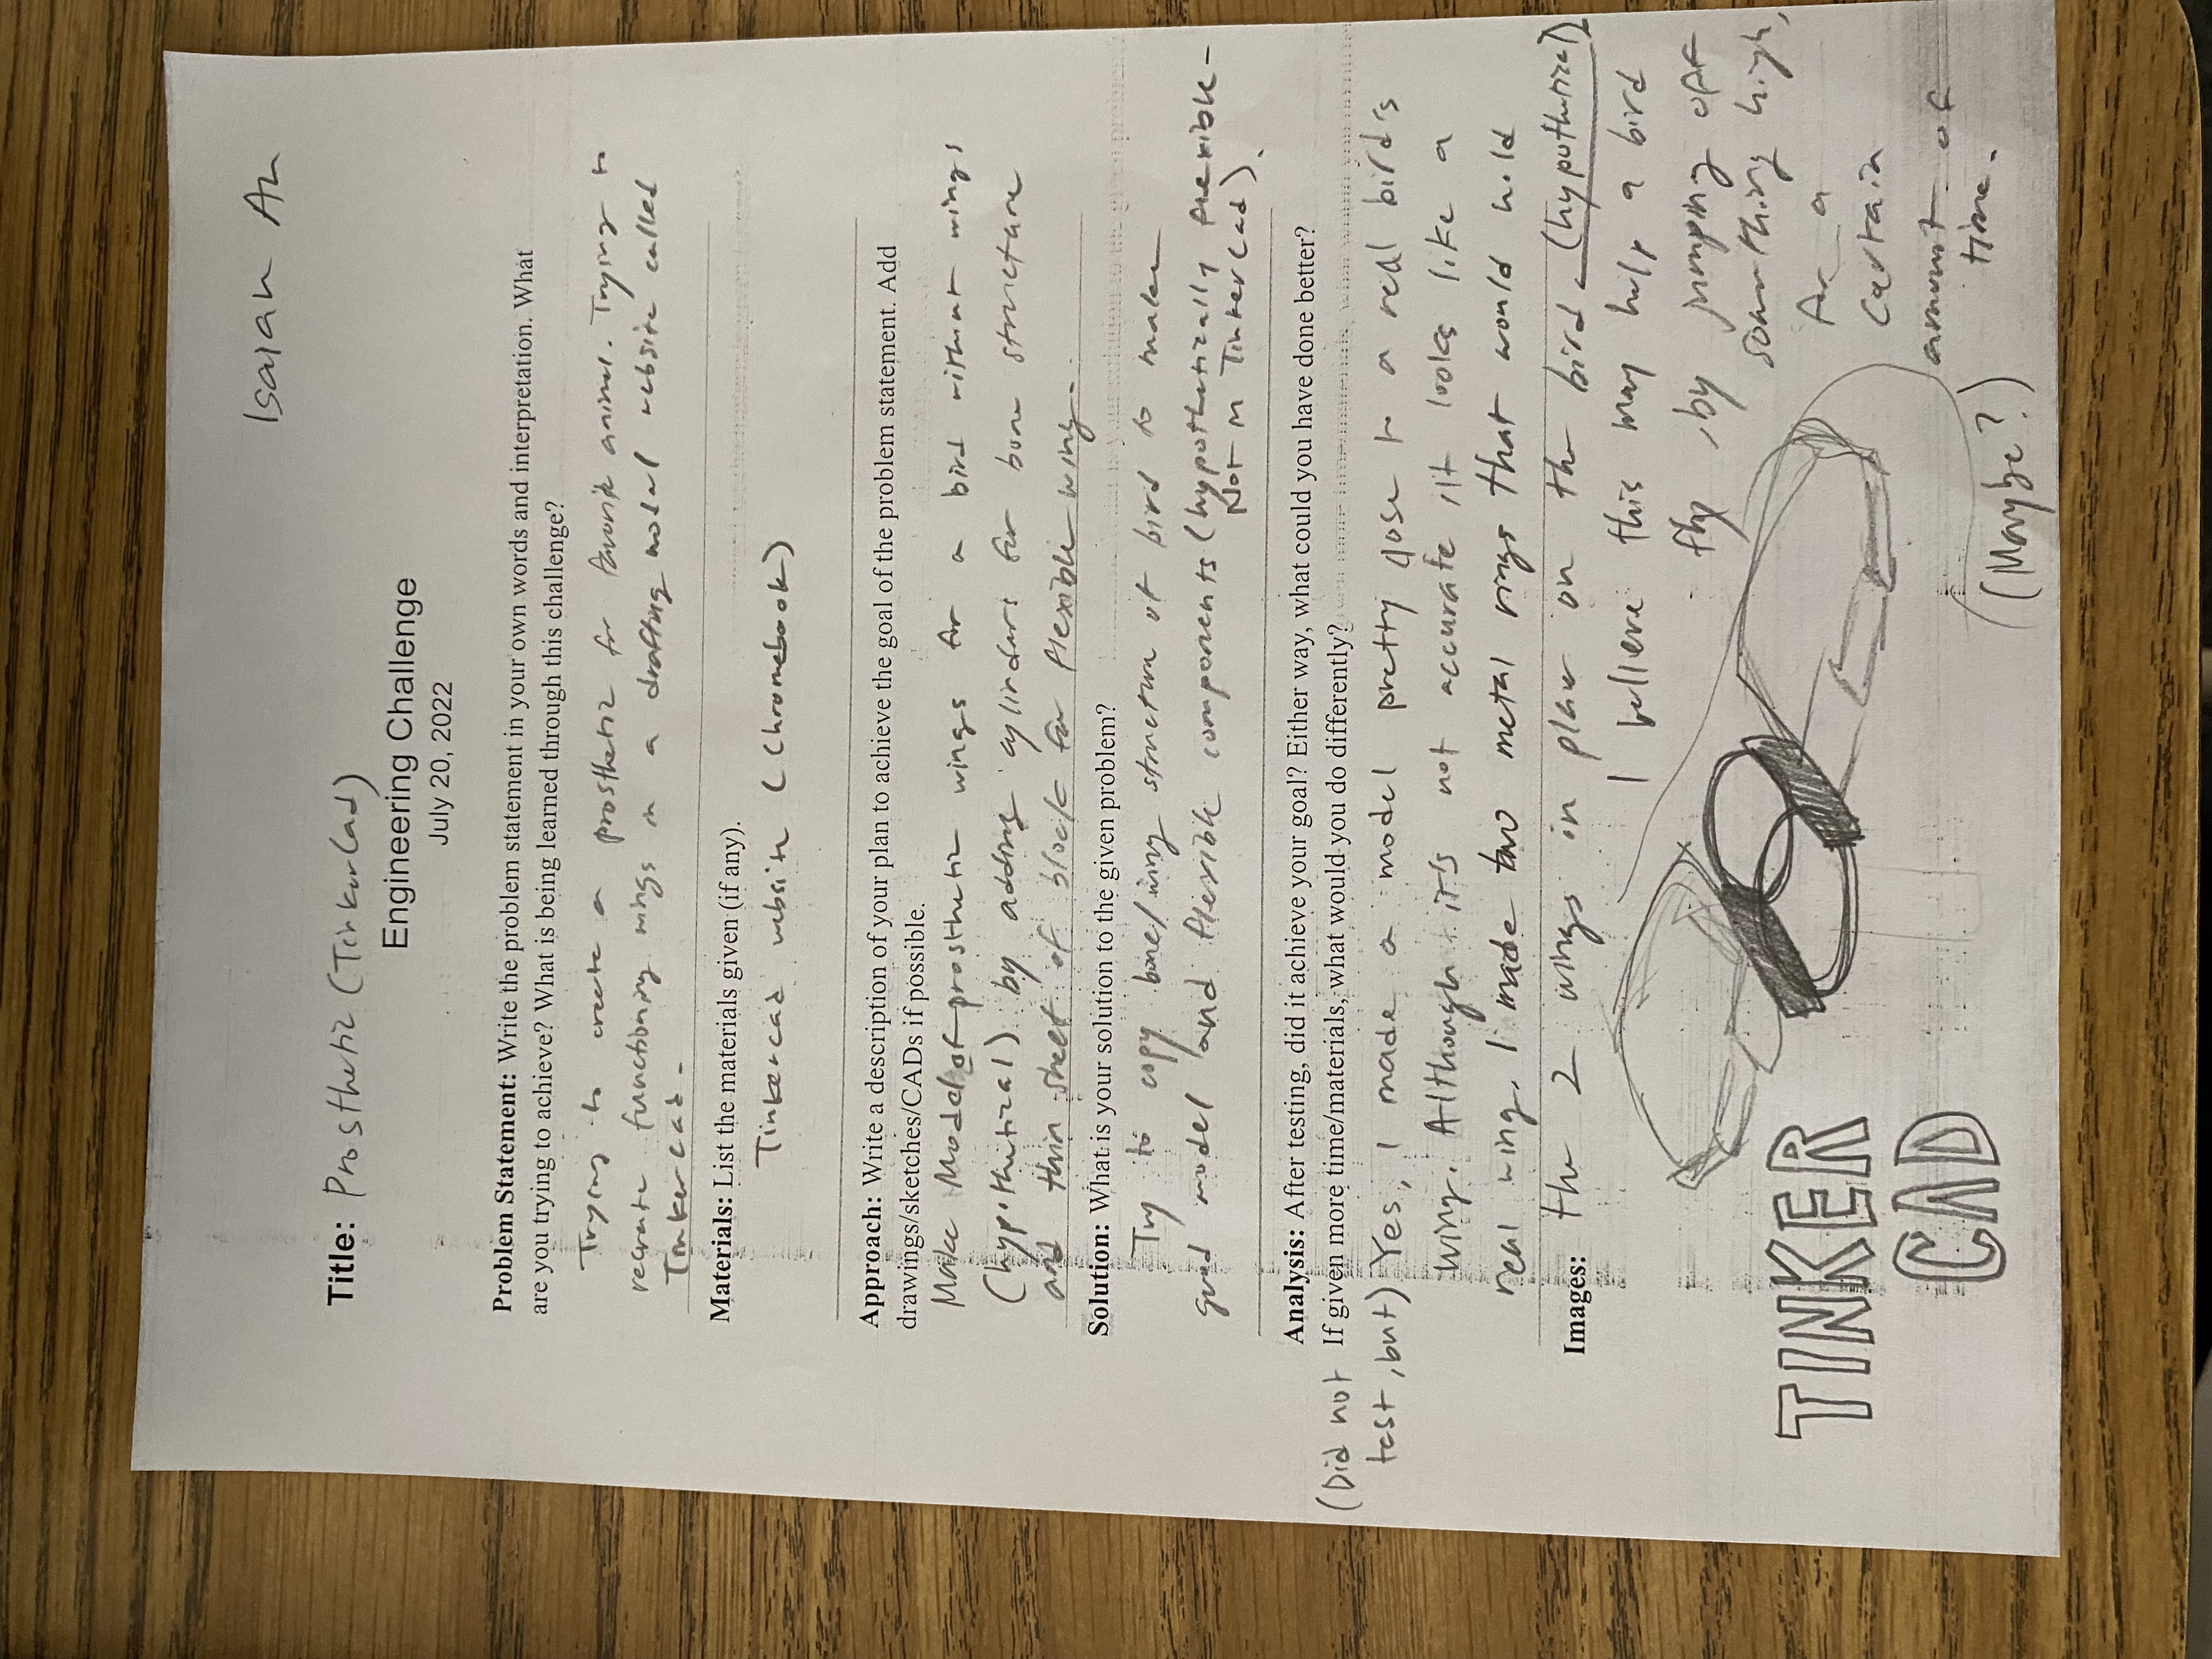 Isaiah An
Title: Prosthetic (TinkerCad)
Engineering Challenge
July 20, 2022
Problem Statement: Write the problem statement in your own words and interpretation. What
are you trying to achieve? What is being learned through this challenge?
Trying to create a prosthetic for favorite animal. Trying to
recreate functioning wings in a drafting model website called
Tinkercad.
Materials: List the materials given (if any).
Tinkercad website (Chromebook)
Approach: Write a description of your plan to achieve the goal of the problem statement. Add
drawings/sketches/CADs if possible.
Make Model of prosthetic wings for a bird without wings
(hypothetical) by adding cylinders for bone structure
and thin sheet of block for flexible wing.
Solution: What is your solution to the given problem?
Try to copy bone/wing structure of bird to make
good model and flexible components (hypothetically flexible-
Not in TinkerCad).
Analysis: After testing, did it achieve your goal? Either way, what could you have done better?
(Did not If given more time/materials, what would you do differently?
test, but) Yes, I made a model pretty close to a real bird's
wing. Although it's not accurate, it looks like a
real wing. I made two metal rings that would hold
Images: the 2 wings in place on the bird. (hypothetical)
I believe this may help a bird
fly, by jumping off
something high,
for a
certain
amount of
time.
TINKER
CAD
(Maybe?)